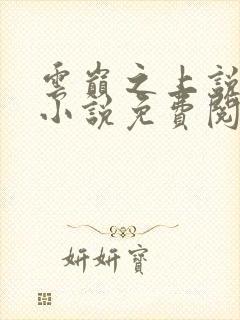 雲巔之上說
小說免費閱
妍妍寶